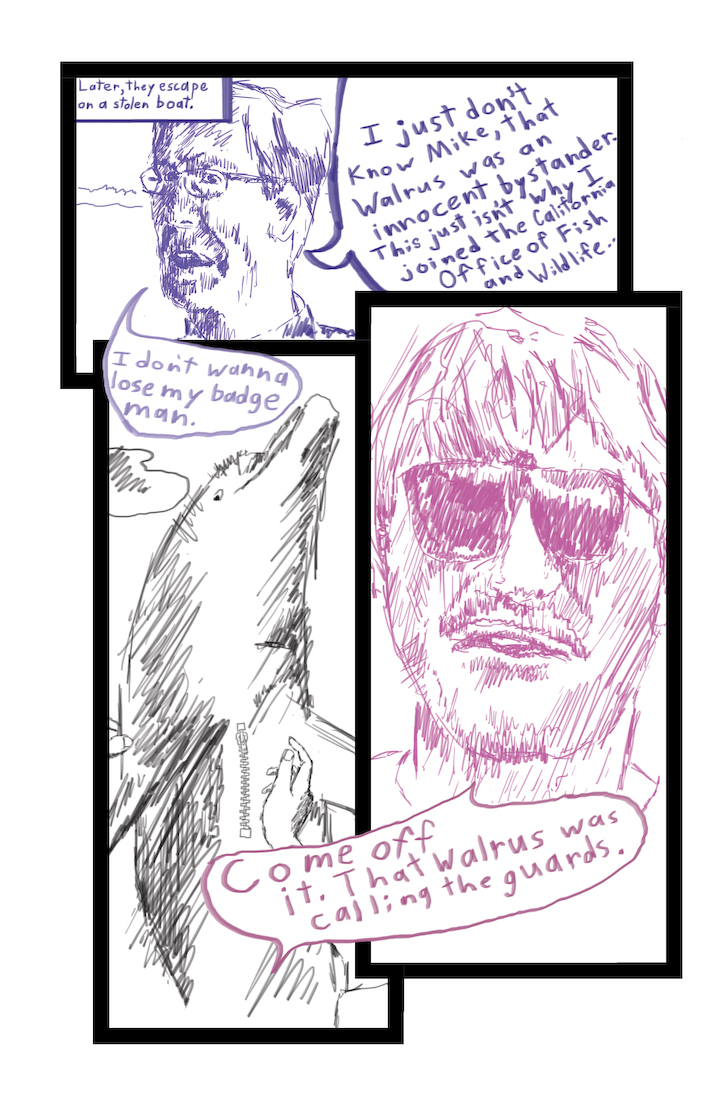 Later, they escape
on a stolen boat.
I just don't
Know Mike, that
Walrus was an
innocent bystander.
This just isn't why I
joined the California
Office of Fish
and Wildlife..
I don't wanna
lose my badge
man.
Come off
it. That Walrus was
calling the guards.